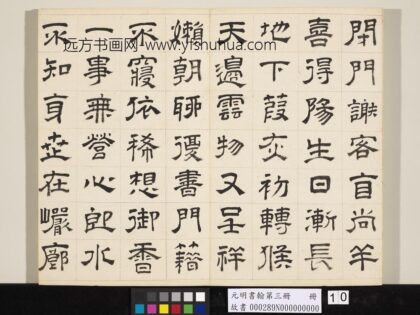 远方书画网 www.yfshuhua.com
閉門謝客尚羊
喜得陽生日漸長
地下葭灰初轉候
天邊雲物又呈祥
嬾朝聊復書門籍
不寢依稀想御香
一事無營心即水
不知身在巖廊
元明書翰第三冊 冊
故書 000289N000000000
10